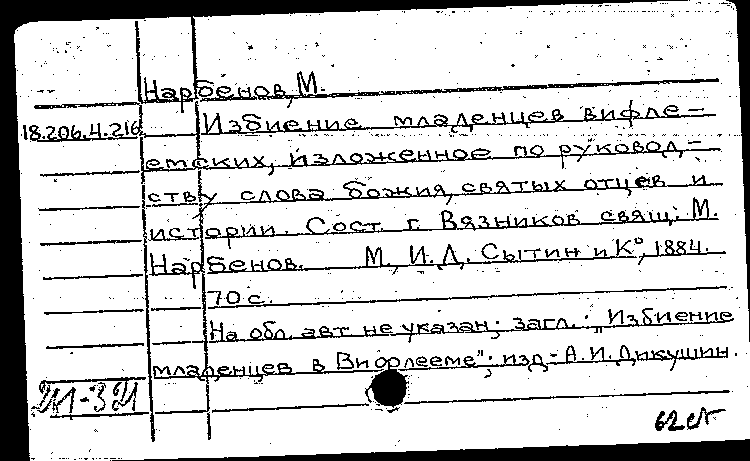 Нарбенов, М.
18.206.4.216 Избиение младенцев вифле-
емских, изложенное по руковод-
ству слова божия, святых отцев и
истории. Сост. г. Вязников свящ. М.
Нарбенов. М., И.Д. Сытин и К°, 1884.
70 с.
На обл. авт. не указан; загл.: "Избиение
младенцев в Вифлееме"; изд-А.И.Дикушин.